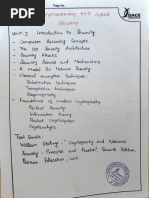 Page No.
DACS
CRYPTOGRAPHY AND CYBER
Security
UNIT I Introduction to Security
- Computer Security Concepts
- The OSI Security Architecture
- Security Attacks
- Security Services and Mechanisms
- A Model for Network Security
- Classical encryption techniques
- Substitution techniques
- Transposition techniques
- Steganography
- Foundations of modern cryptography
- Perfect Security
- Information Theory
- Product Cryptosystem
- Cryptanalysis
Text Book:
William Stalling - Cryptography and Network
Security - Principles and Practice, Seventh Edition,
Pearson Education, 2017.